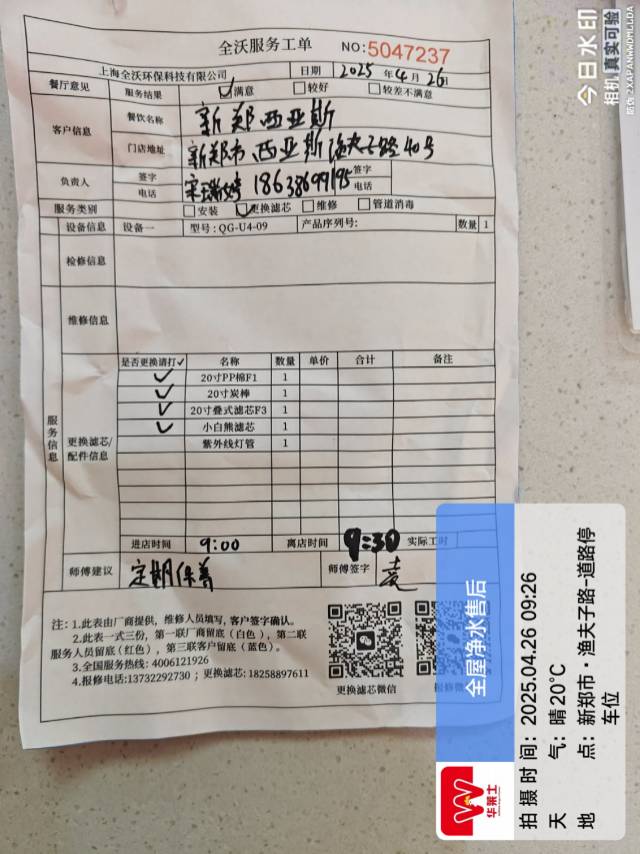 全沃服务工单 NO:5047237
上海全沃环保科技有限公司 日期 2025 年 4 月 26日
餐厅意见 服务结果 满意 较好 较差不满意
客户信息 餐饮名称 新郑西亚斯
门店地址 新郑市西亚斯渔夫子路40号
负责人 签字 签字
电话 18638699195 电话
服务类别 安装 更换滤芯 维修 管道消毒
设备信息 设备一 型号:QG-U4-09 产品序列号: 数量 1
检修信息
维修信息
服务信息
更换滤芯/配件信息
是否更换请打✓ 名称 数量 单价 合计 备注
✓ 20寸PP棉F1 1
✓ 20寸炭棒 1
✓ 20寸叠式滤芯F3 1
✓ 小白熊滤芯 1
紫外线灯管 1
进店时间 9:00 离店时间 9:30 实际工时
师傅建议 定期保养 师傅签字
注:1.此表由厂商提供,维修人员填写,客户签字确认。
2.此表一式三份,第一联厂商留底(白色),第二联
服务人员留底(红色),第三联客户留底(蓝色)。
3.全国服务热线:4006121926
4.报修电话:13732292730;更换滤芯:18258897611
更换滤芯微信
今日水印
相机 真实可验
防伪 2XAPANWWDMLLDA
全屋净水售后
华莱士
拍摄时间:2025.04.26 09:26
天气:晴20°C
地点:新郑市·渔夫子路-道路停
车位